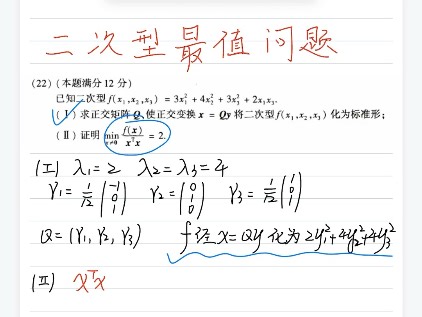 二次型最值问题
(22) (本题满分12分)
已知二次型 f(x₁,x₂,x₃) = 3x₁² + 4x₂² + 3x₃² + 2x₁x₃.
(Ⅰ) 求正交矩阵 Q, 使正交变换 x = Qy 将二次型 f(x₁,x₂,x₃) 化为标准形;
(Ⅱ) 证明 min_{x≠0} f(x)/xᵀx = 2.
(Ⅰ) λ₁=2 λ₂=λ₃=4
γ₁=1/√2(-1 0 1) γ₂=(0 1 0) γ₃=1/√2(1 0 1)
Q=(γ₁,γ₂,γ₃) f经x=Qy化为2y₁²+4y₂²+4y₃²
(Ⅱ) xᵀx